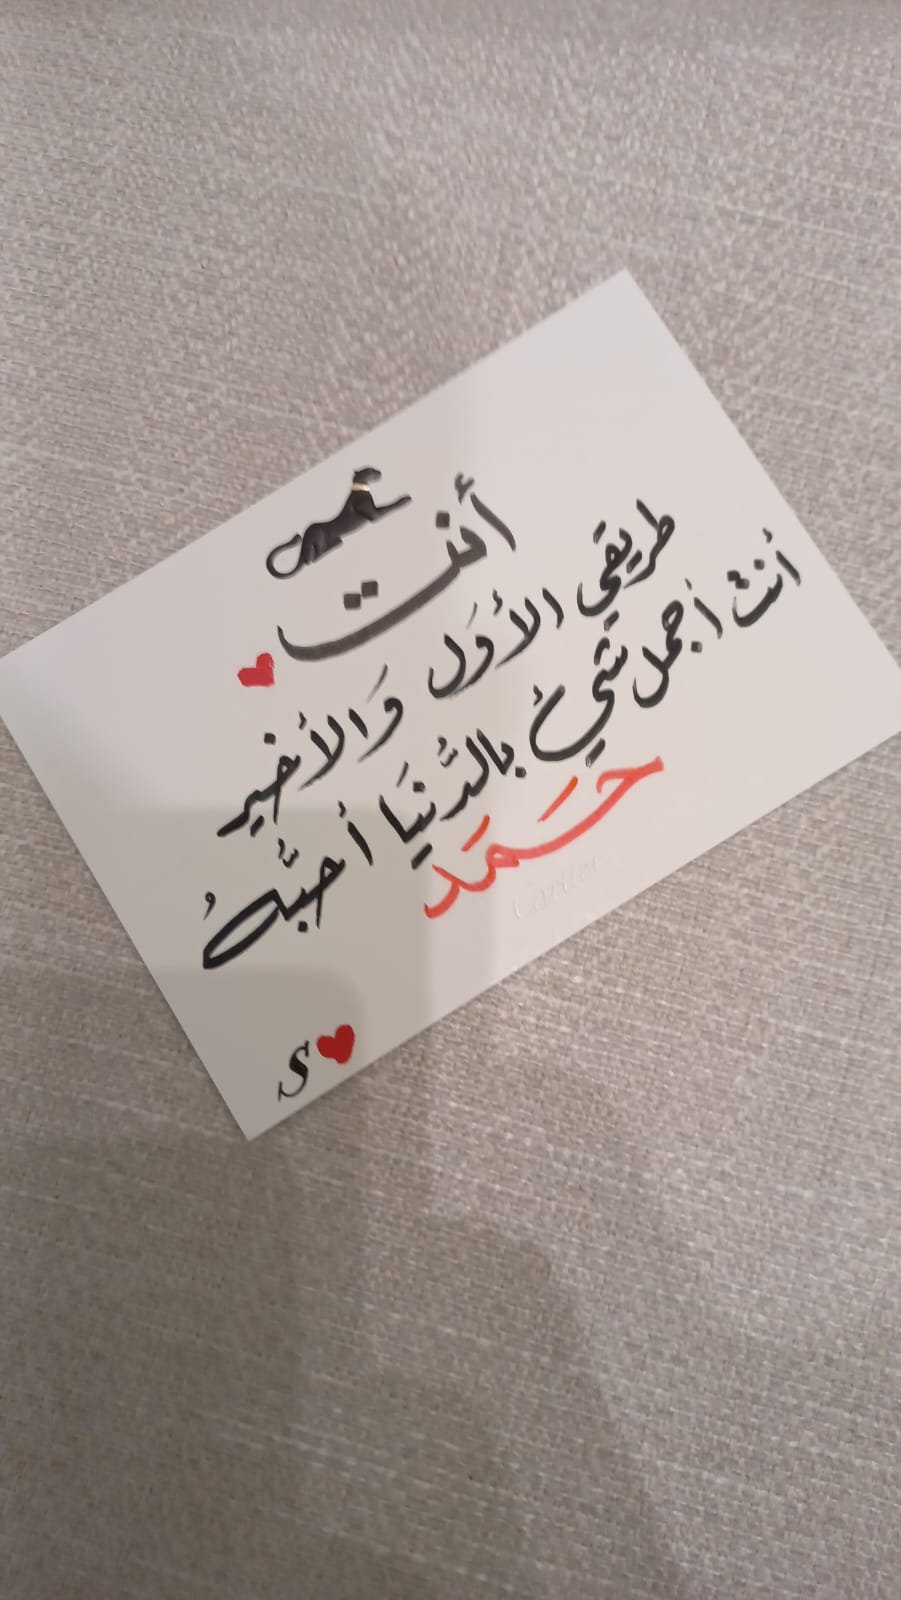 أنت
طريقي الأوَل وَالأخير
أنت أجمل شيءُ بالدُّنيَا أحبُّهُ
حَمَد
Cartier
S